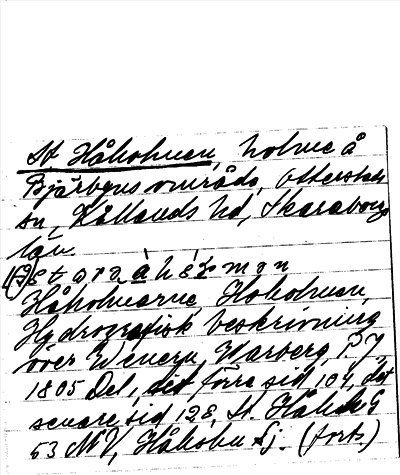 St Håholmen, holme å
Bjärbyns område, Otterstads
sn, Kållands hd, Skaraborgs
län.
Håholmarne, Hoholmen,
Hydrografisk beskrivning
över Wenern, Warberg, P J,
1805 Del, det förra sid 104, det
senare sid 128, St. Håh G
53 NV, Håholm Sj. (forts)